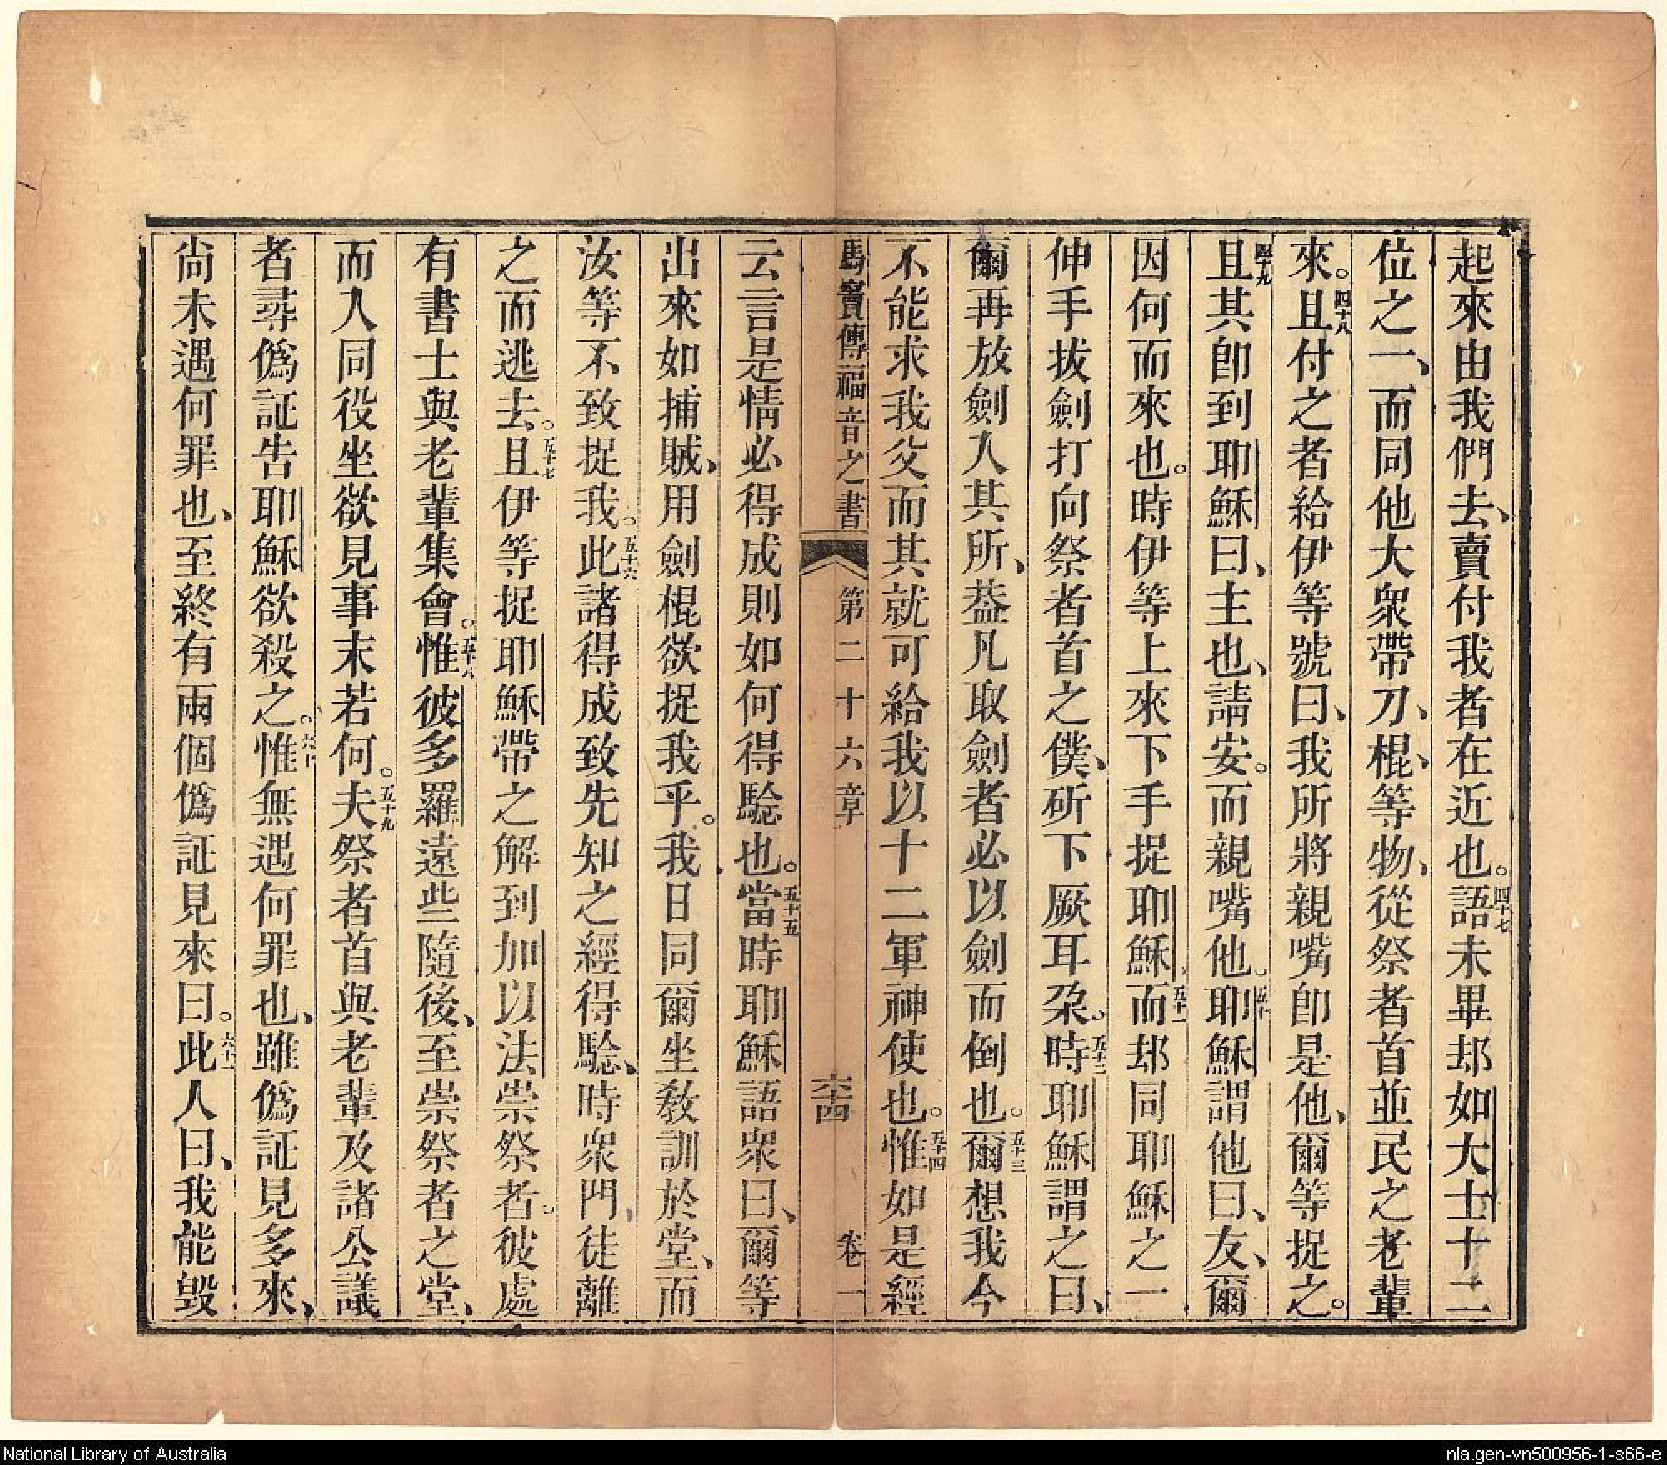 起來由我們去、賣付我者在近也。四十七語未畢却如大士十二
位之一、而同他大衆帶刀、棍、等物、從祭者首並民之老輩
來。四十八且付之者給伊等號曰、我所將親嘴卽是他、爾等捉之。
四十九且其卽到耶穌曰、主也、請安。而親嘴他。五十耶穌謂他曰、友、爾
因何而來也。時伊等上來下手捉耶穌、五十一而却同耶穌之一
伸手拔劍打向祭者首之僕、斫下厥耳朶。五十二時耶穌謂之曰、
爾再放劍入其所、葢凡取劍者必以劍而倒也。五十三爾想我今
不能求我父而其就可給我以十二軍神使也。五十四惟如是經
馬竇傳福音之書 第二十六章 六十四 卷一
云言是情必得成則如何得騐也。五十五當時耶穌語衆曰、爾等
出來如捕賊、用劍棍欲捉我乎。我日同爾坐敎訓於堂、而
汝等不致捉我。五十六此諸得成致先知之經得騐、時衆門徒離
之而逃去。五十七且伊等捉耶穌帶之解到加以法崇祭者。彼處
有書士與老輩集會。五十八惟彼多羅遠些隨後、至崇祭者之堂、
而入同役坐欲見事末若何。五十九夫祭者首與老輩及諸公議
者尋僞証告耶穌欲殺之。六十惟無遇何罪也、雖僞証見多來、
尚未遇何罪也、至終有兩個僞証見來曰。六十一此人曰、我能毁